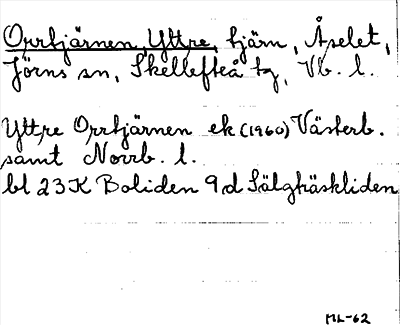 Orrtjärnen, Yttre, tjärn, Åselet,
Jörns sn, Skellefteå tg, Vb. l.
Yttre Orrtjärnen ek (1960) Västerb.
samt Norrb. l.
bl 23K Boliden 9d Sälgträskliden
ML-62